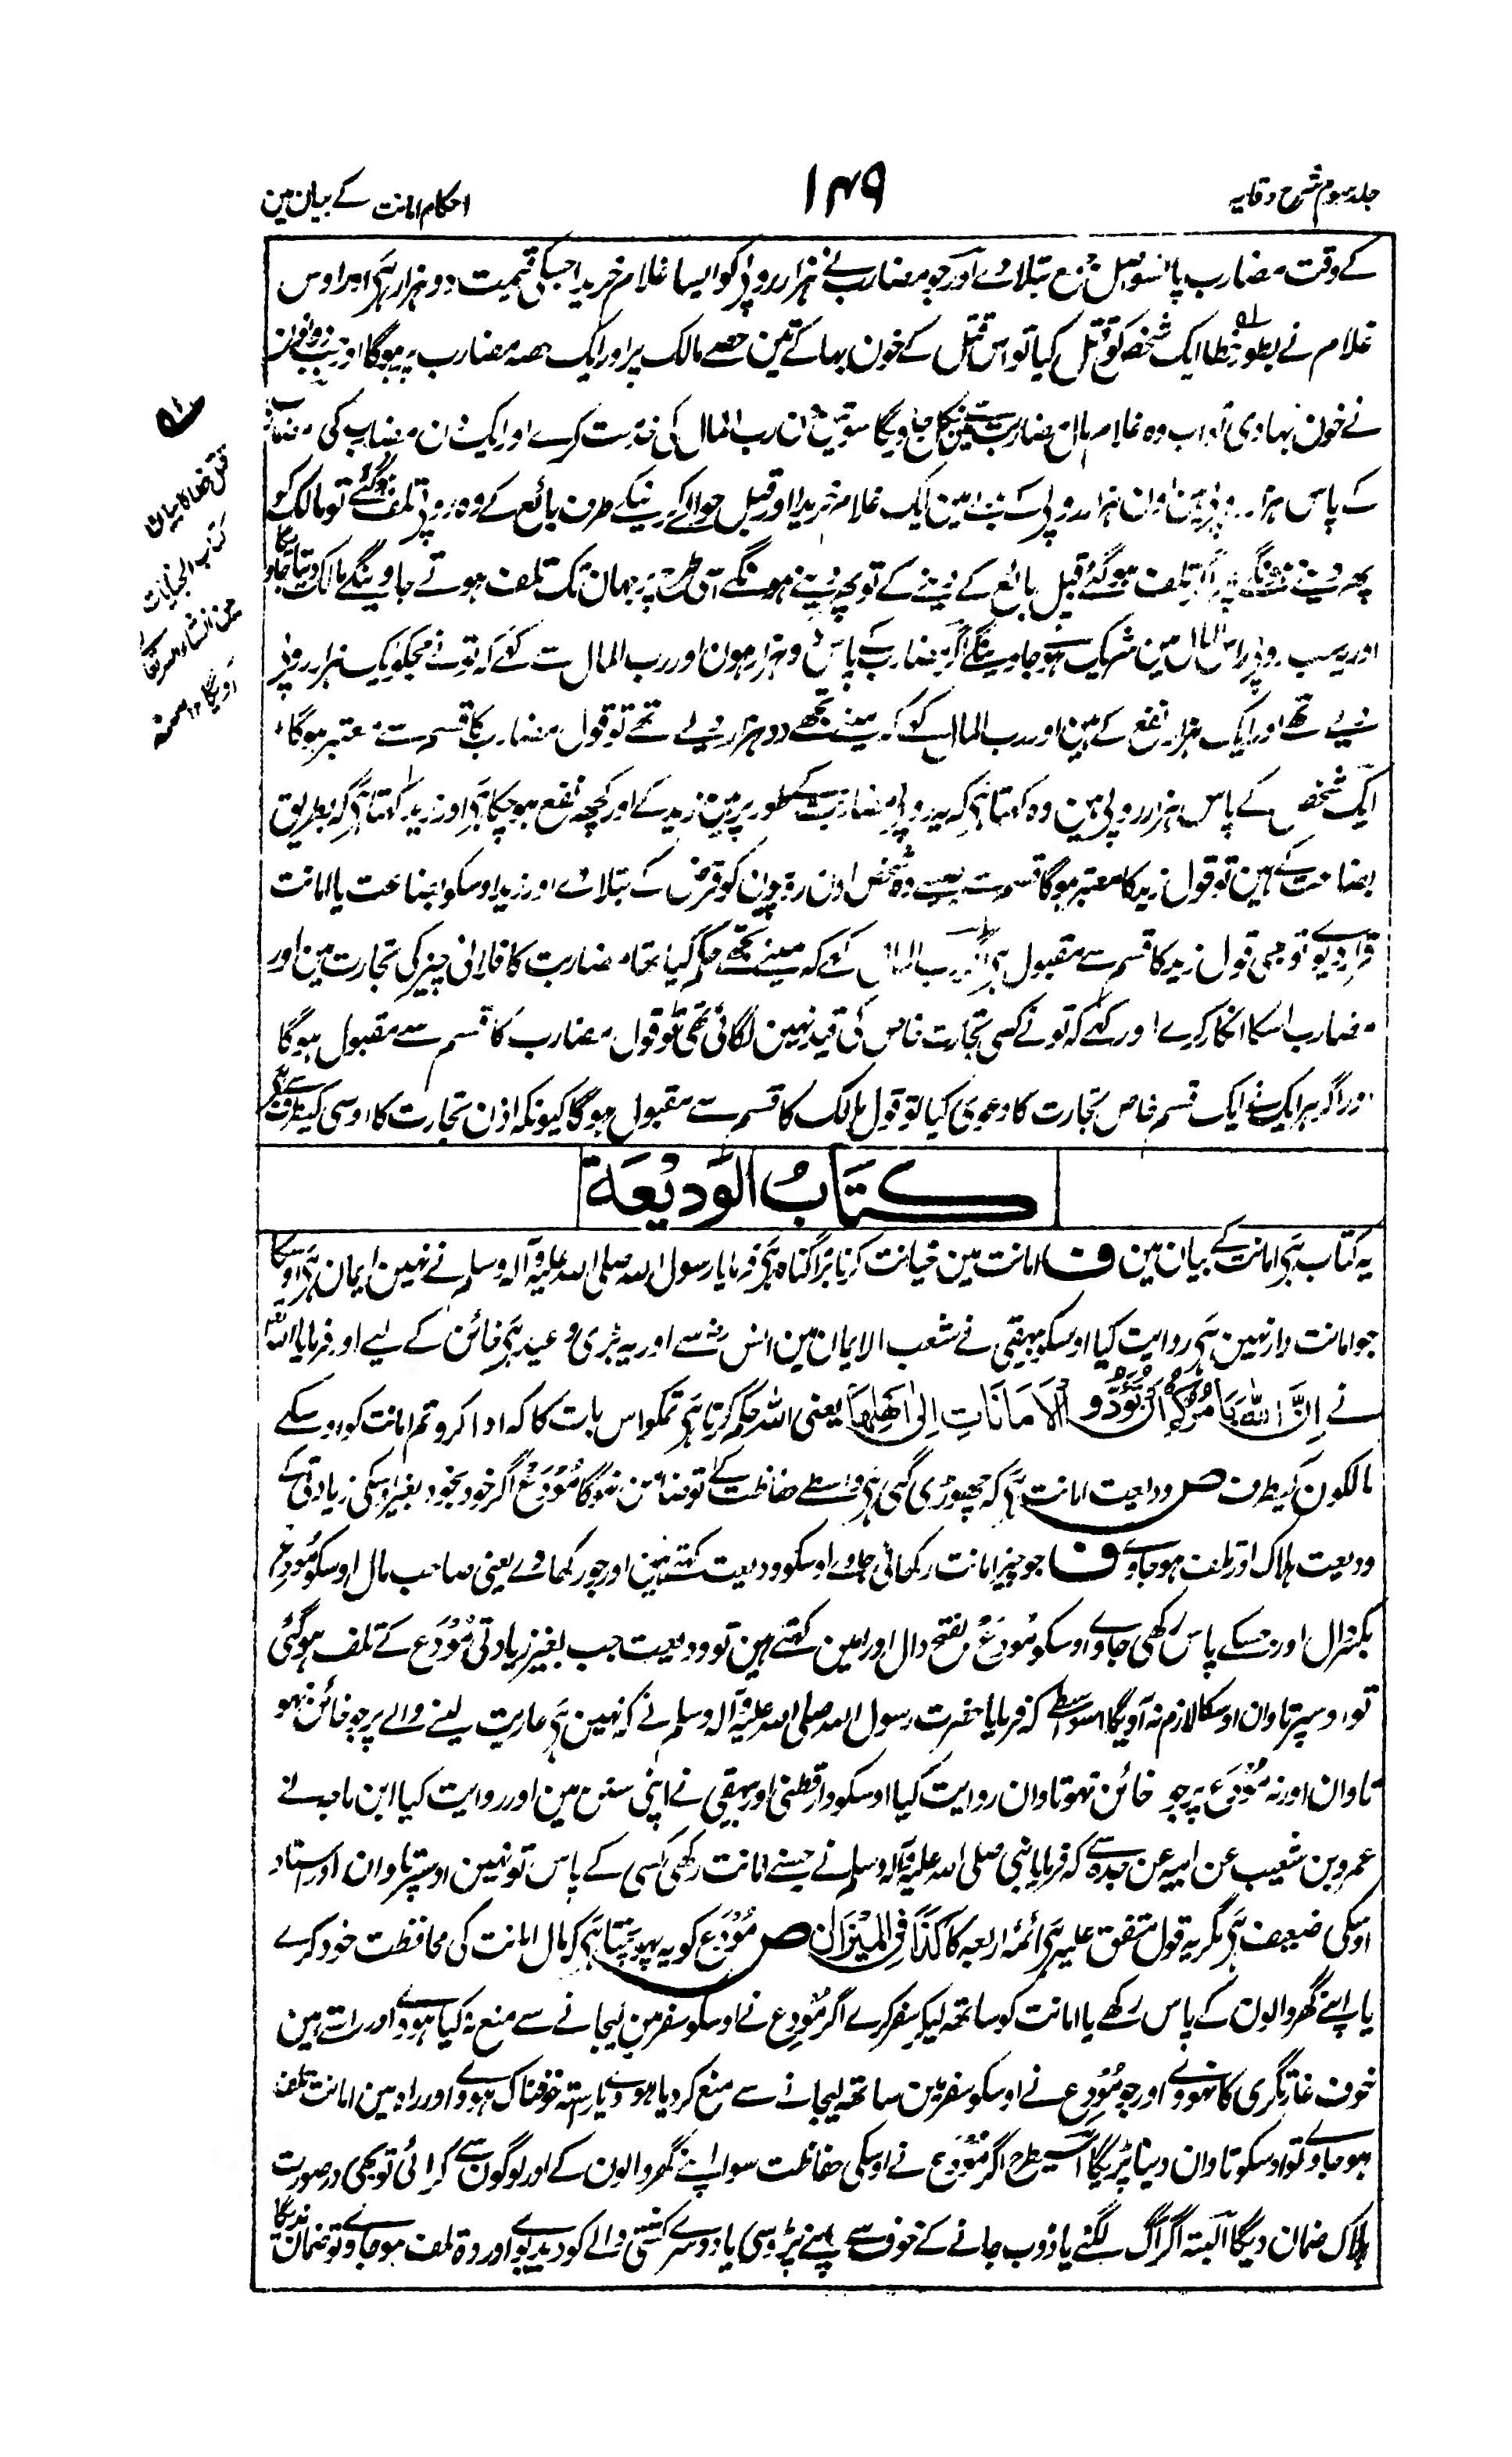 جلد سوم شرح وقایہ
۱۴۹
احکام امانت کے بیان مین
کے وقت مضارب پانسو اصل ثمن بتلاوے اور جو مضارب نے ہزار روپی کو ایسا غلام خریدا جسکی قیمت دو ہزار ہی اور اوس
غلام نے بطور خطا ایک شخص کو قتل کیا تو اس قتل کے خون بہا کے تین حصے مالک پر اور ایک حصہ مضارب پر ہوگا اور جب دونون
نے خون بہا دی تو اب وہ غلام مال مضاربت سے نکل جاویگا سو تین دن رب المال کی خدمت کرے اور ایک دن مضارب کی مضارب
کے پاس ہزار روپی ہین اون ہزار روپی کے بدلے مین ایک غلام خریدا اور قبل حوالے کرنیکے طرف بائع کے وہ روپی تلف ہوگئے تو مالک کو
پھر دینے ہونگے پھر اگر تلف ہوگئے قبل بائع کے دینے کے تو پھر دینے ہونگے اسی طرح پر جہان تک تلف ہوتے جاوینگے مالک دیتا جاویگا
اور یہ سب روپی راس المال مین شریک ہو جاوینگے اگر مضارب کے پاس دو ہزار ہون اور رب المال سے کہے کہ تونے مجکو ایک ہزار روپی
دیے تھے اور ایک ہزار نفع کے ہین اور رب المال کہے کہ مینے تجھے دو ہزار دیے تھے تو قول مضارب کا قسم سے معتبر ہوگا
ایک شخص کے پاس ہزار روپی ہین وہ کہتا ہی کہ یہ روپی مضاربت کے طور پر ہین زید کے اور کچھ نفع ہو چکا ہی اور زید کہتا ہی کہ بطریق
بضاعت کے ہین تو قول زید کا معتبر ہوگا قسم سے جیسے وہ شخص اون روپیون کو قرض کے بتلاوے اور زید اوسکو بضاعت یا امانت
قرار دیوے تو بھی قول زید کا قسم سے مقبول ہی اگر رب المال کہے کہ مینے تجھے حکم کیا تھا مضاربت کا فلانی چیز کی تجارت مین اور
مضارب اسکا انکار کرے اور کہے کہ تونے کسی تجارت خاص کی قید نہین لگائی تھی تو قول مضارب کا قسم سے مقبول ہوگا
اور اگر ہر ایک نے ایک قسم خاص تجارت کا دعوی کیا تو قول مالک کا قسم سے مقبول ہوگا کیونکہ اذن تجارت کا اوسی کیطرف سے ہی
قتل خطا کا بیان
کتاب الجنایات
مین انشاء اللہ تعالی
آویگا ۱۲ منہ
کِتَابُ الْوَدِیْعَة
یہ کتاب ہی امانت کے بیان مین ف امانت مین خیانت کرنا بڑا گناہ ہی فرمایا رسول اللہ صلی اللہ علیہ وآلہ وسلم نے نہین ایمان ہی اوسکا
جو امانت دار نہین ہی روایت کیا اوسکو بیہقی نے شعب الایمان مین انس رضہ سے اور یہ بڑی وعید ہی خائن کے لیے اور فرمایا اللہ تعالی
نے اِنَّ اللہَ یَأمُرُکُمْ اَنْ تُؤَدُّوا الْاَمَانَاتِ اِلیٰ اَھْلِھَا یعنی اللہ حکم کرتا ہی تمکو اس بات کا کہ ادا کرو تم امانت کو اوسکے
مالکون کیطرف ص ودیعت امانت ہی کہ چھوڑی گئی ہی واسطے حفاظت کے تو ضامن نہوگا مُوْدَع اگر خود بخود بغیر اوسکی زیادتی کے
ودیعت ہلاک اور تلف ہو جاوے ف جو چیز امانت رکھائی جاوے اوسکو ودیعت کہتے ہین اور جو رکھاوے یعنی صاحب مال اوسکو مُودِع
بکسر دال اور جسکے پاس رکھی جاوے اوسکو مُودَع بفتح دال اور امین کہتے ہین تو ودیعت جب بغیر زیادتی مُودَع کے تلف ہوگئی
تو اوسپر تاوان اوسکا لازم نہ آویگا اسواسطے کہ فرمایا حضرت رسول اللہ صلی اللہ علیہ وآلہ وسلم نے کہ نہین ہی عاریت لینے والے پر جو خائن نہو
تاوان اور نہ مُوْدَع پر جو خائن نہو تاوان روایت کیا اوسکو دارقطنی اور بیہقی نے اپنی سنن مین اور روایت کیا ابن ماجہ نے
عمرو بن شعیب عن ابیہ عن جدہ سے کہ فرمایا نبی صلی اللہ علیہ وآلہ وسلم نے جسنے امانت رکھی کسی کے پاس تو نہین اوسپر تاوان اور اسناد
اوسکی ضعیف ہی مگر یہ قول متفق علیہ ہی ائمہ اربعہ کا کَذَا فِی الْمِیْزَان ص مُوْدَع کو یہ پہونچتا ہی کہ مال امانت کی محافظت خود کرے
یا اپنے گھر والون کے پاس رکھے یا امانت کو ساتھ لیکر سفر کرے اگر مُودِع نے اوسکو سفر مین لیجانے سے منع نہ کیا ہووے اور راستے مین
خوف غارتگری کا نہووے اور جو مُودِع نے اوسکو سفر مین ساتھ لیجانے سے منع کر دیا ہووے یا رستہ خوفناک ہووے اور راہ مین امانت تلف
ہو جاوے تو اوسکو تاوان دینا پڑیگا اسیطرح اگر مُوْدَع نے اوسکی حفاظت سوا اپنے گھر والون کے اور لوگون سے کرائی تو بھی در صورت
ہلاک ضمان دیگا البتہ اگر آگ لگنے یا ڈوب جانے کے خوف سے اپنے پڑوسی یا دوسرے کشتی والے کو دیدیوے اور وہ تلف ہو جاوے تو ضمان ندیگا